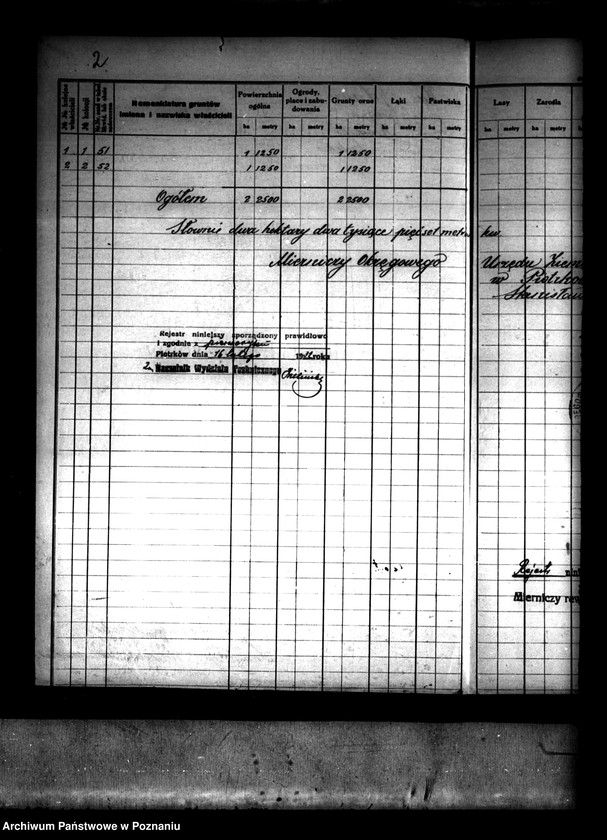 2
№ № kolejne właścicieli
№ kolonji
Nomenklatura gruntów
imiona i nazwiska właścicieli
Powierzchnia ogólna
Ogrody, place i zabudowania
Grunty orne
Łąki
Pastwiska
Lasy
Zarośla
ha metry ha metry ha metry ha metry ha metry ha metry ha metry
1 1 51 1 1250 1 1250
2 2 52 1 1250 1 1250
Ogółem 2 2500 2 2500
Słownie dwa hektary dwa tysiące pięćset metr. kw.
Mierniczy Okręgowego Urzędu Ziem
w Piotrko
Stanisław
Rejestr niniejszy sporządzony prawidłowo
i zgodnie z pierwszym
Piotrków dnia 16 lutego 19 roku
Naczelnik Wydziału Technicznego
Rejestr nini
Mierniczy rew
Archiwum Państwowe w Poznaniu